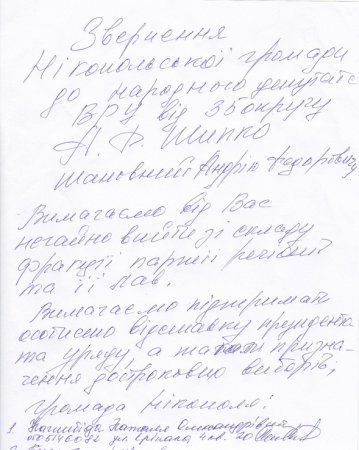 Звернення
Нікопольської громади
до народного депутата
ВРУ від 35 округу
А. Ф. Шипко
Шановний Андрію Федоровичу
Вимагаємо від Вас
негайно вийти зі складу
фракції партії регіонів
та її лав.
Вимагаємо підтримати
особисто відставку президента
та уряду, а також призна-
чення дострокових виборів,
Громада Нікополя:
1. Наталія Олександрівна